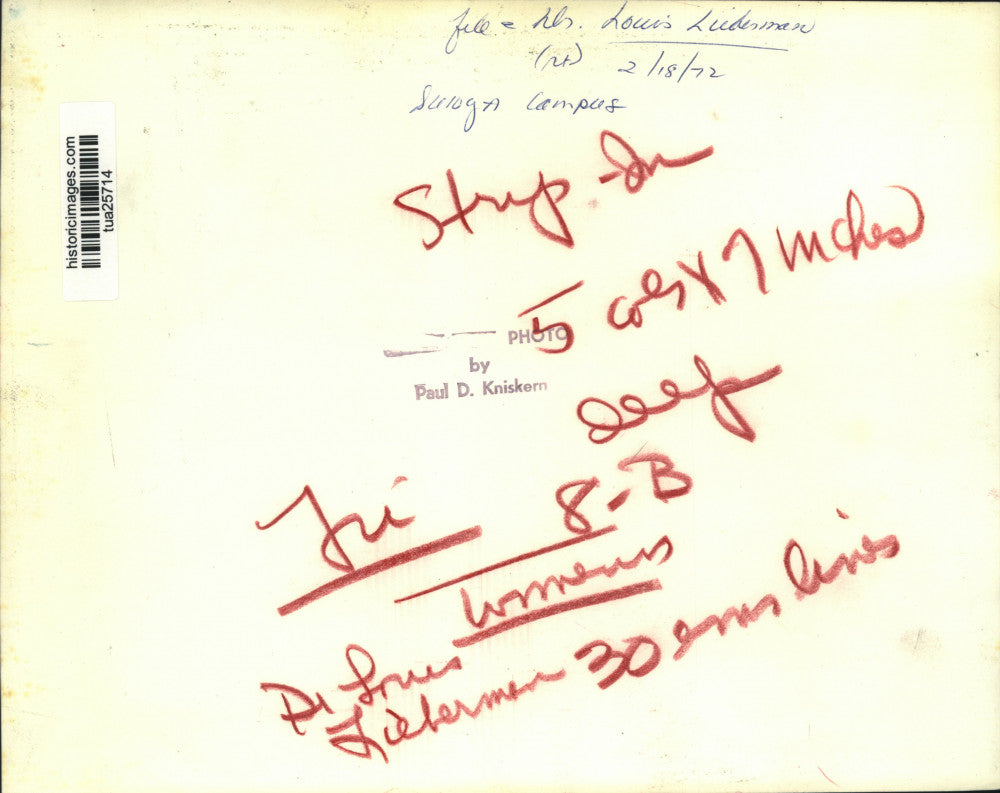 file = Dr. Louis Lieberman
(rt) 2/18/72
Campus
historicimages.com
tua25714
Strip-In
5 cols x 7 inches
deep
PHOTO
by
Paul D. Kniskern
Fri 8-B
Womens
Dr Louis
Lieberman 30 ems lines